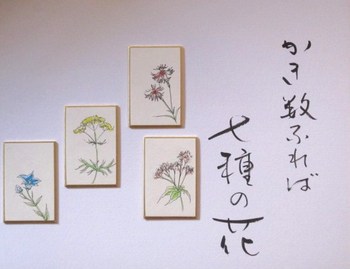 かき数ふれば
七種の花